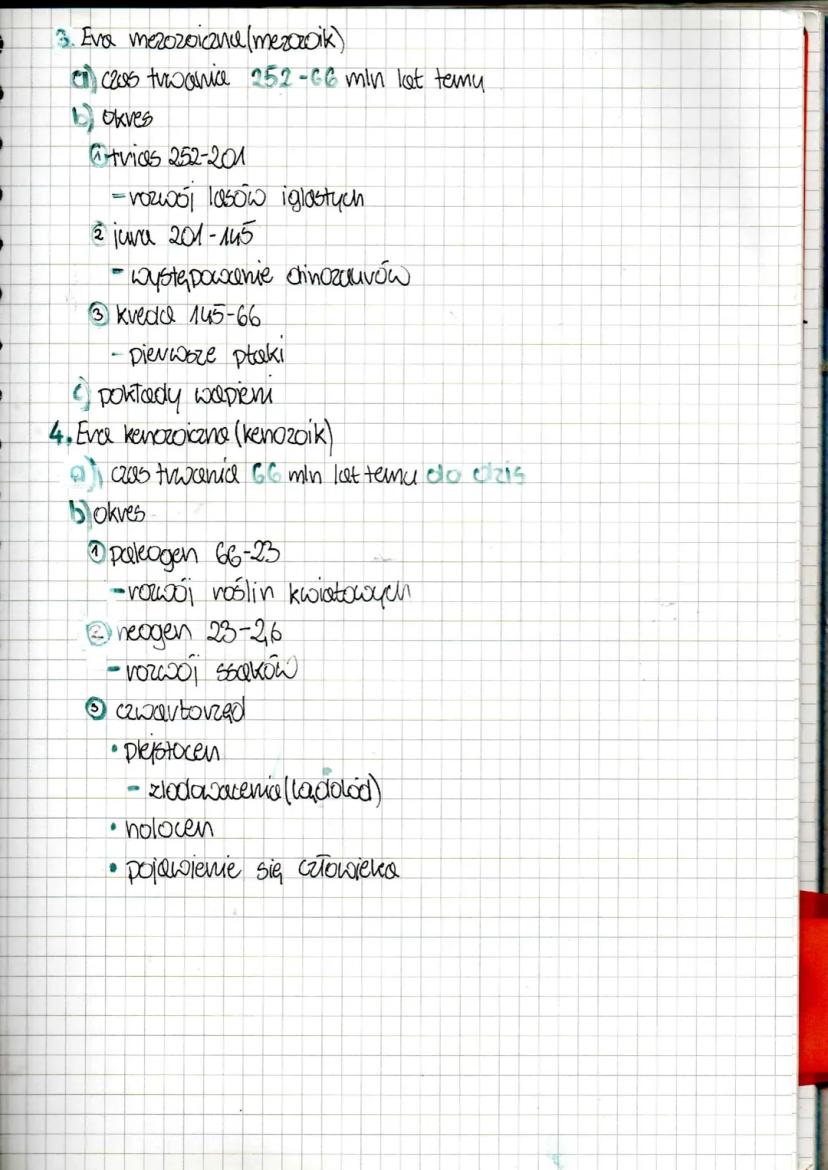 3. Era mezozoiczna (mezozoik)
a) czas trwania 252-66 mln lat temu
b) okres
① trias 252-201
- rozwój lasów iglastych
② jura 201-145
- występowanie dinozaurów
③ kreda 145-66
- pierwsze ptaki
c) pokłady wapieni
4. Era kenozoiczna (kenozoik)
a) czas trwania 66 mln lat temu do dziś
b) okres
① paleogen 66-23
- rozwój roślin kwiatowych
② neogen 23-2,6
- rozwój ssaków
③ czwartorzęd
• plejstocen
- zlodowacenia (lądolód)
• holocen
• pojawienie się człowieka